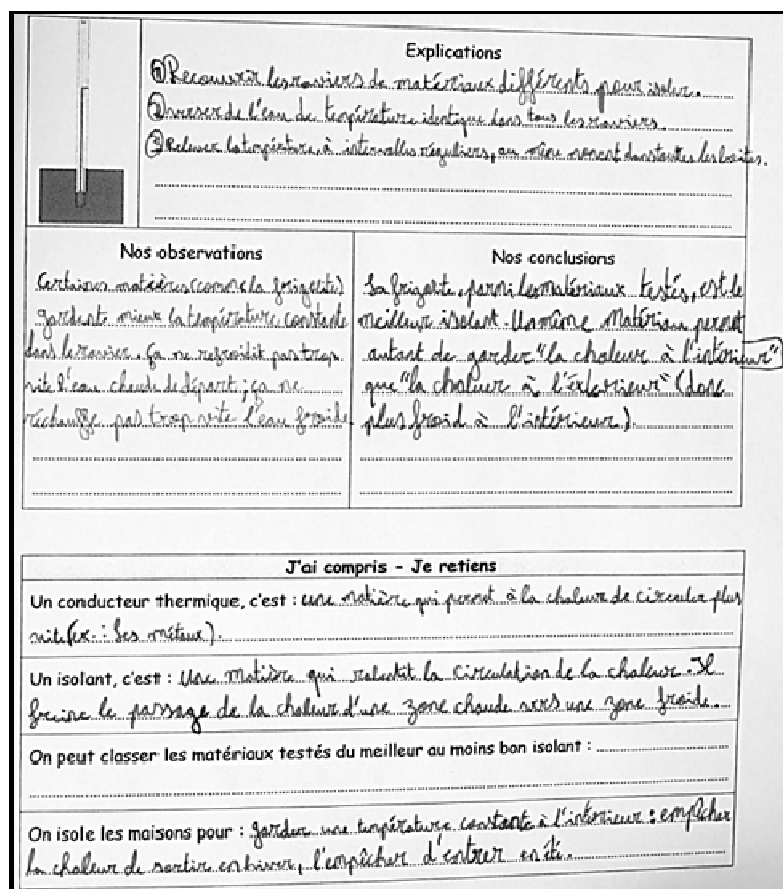 Explications
① Recouvrir les raviers de matériaux différents pour isoler.
② verser de l'eau de température identique dans tous les raviers.
③ Relever la température, à intervalles réguliers, au même moment dans toutes les boites.
Nos observations
Certaines matières (comme la frigolite)
gardent mieux la température constante
dans le ravier. Ça ne refroidit pas trop
vite l'eau chaude de départ ; ça ne
réchauffe pas trop vite l'eau froide.
Nos conclusions
La frigolite, parmi les matériaux testés, est le
meilleur isolant. Un même matériau permet
autant de garder "la chaleur à l'intérieur"
que "la chaleur à l'extérieur" (donc
plus froid à l'intérieur).
J'ai compris - Je retiens
Un conducteur thermique, c'est : une matière qui permet à la chaleur de circuler plus
vite (ex. : les métaux).
Un isolant, c'est : Une matière qui ralentit la circulation de la chaleur. Il
freine le passage de la chaleur d'une zone chaude vers une zone froide.
On peut classer les matériaux testés du meilleur au moins bon isolant :
On isole les maisons pour : garder une température constante à l'intérieur : empêcher
la chaleur de sortir en hiver, l'empêcher d'entrer en été.